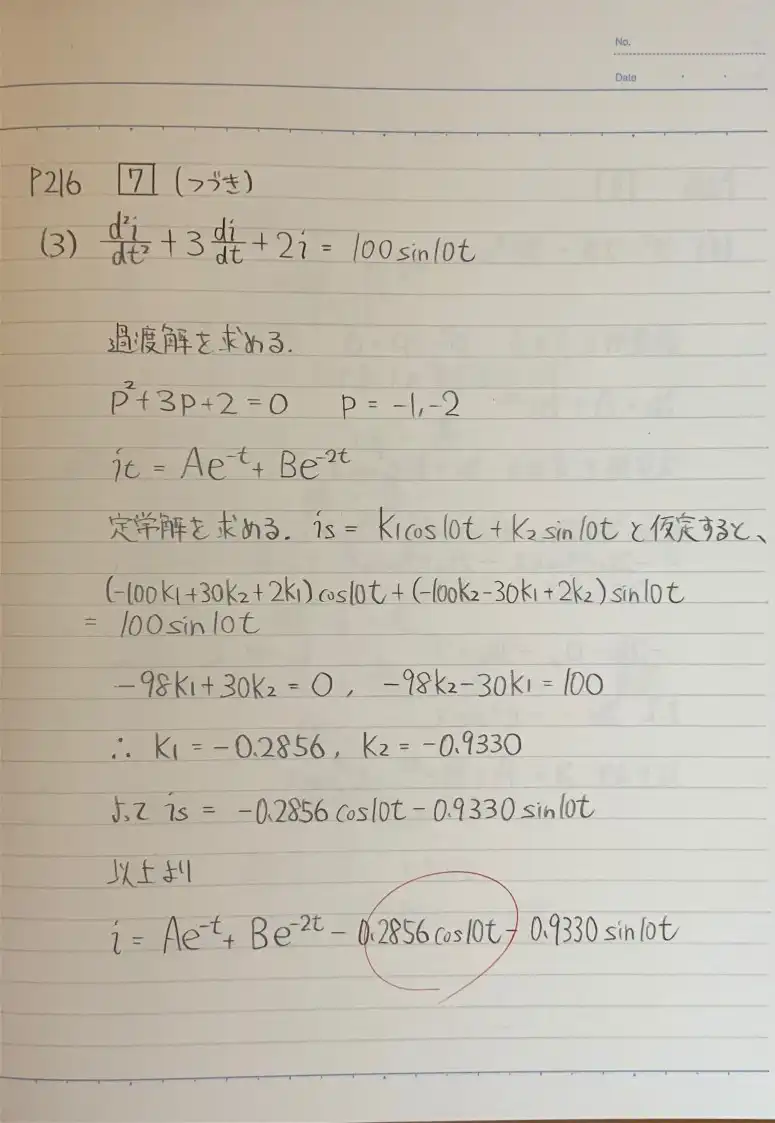 No.
Date
P216 7 (つづき)
(3) d²i/dt² + 3 di/dt + 2i = 100 sin10t
過渡解を求める.
p²+3p+2=0 p = -1, -2
it = Ae^-t + Be^-2t
定学解を求める. is = K1cos10t + K2 sin10t と仮定すると、
(-100K1+30K2+2K1)cos10t + (-100K2-30K1+2K2)sin10t
= 100sin10t
-98K1+30K2=0, -98K2-30K1=100
∴ K1 = -0.2856, K2 = -0.9330
よって is = -0.2856 cos10t - 0.9330 sin10t
以上より
i = Ae^-t + Be^-2t - 0.2856 cos10t - 0.9330 sin10t